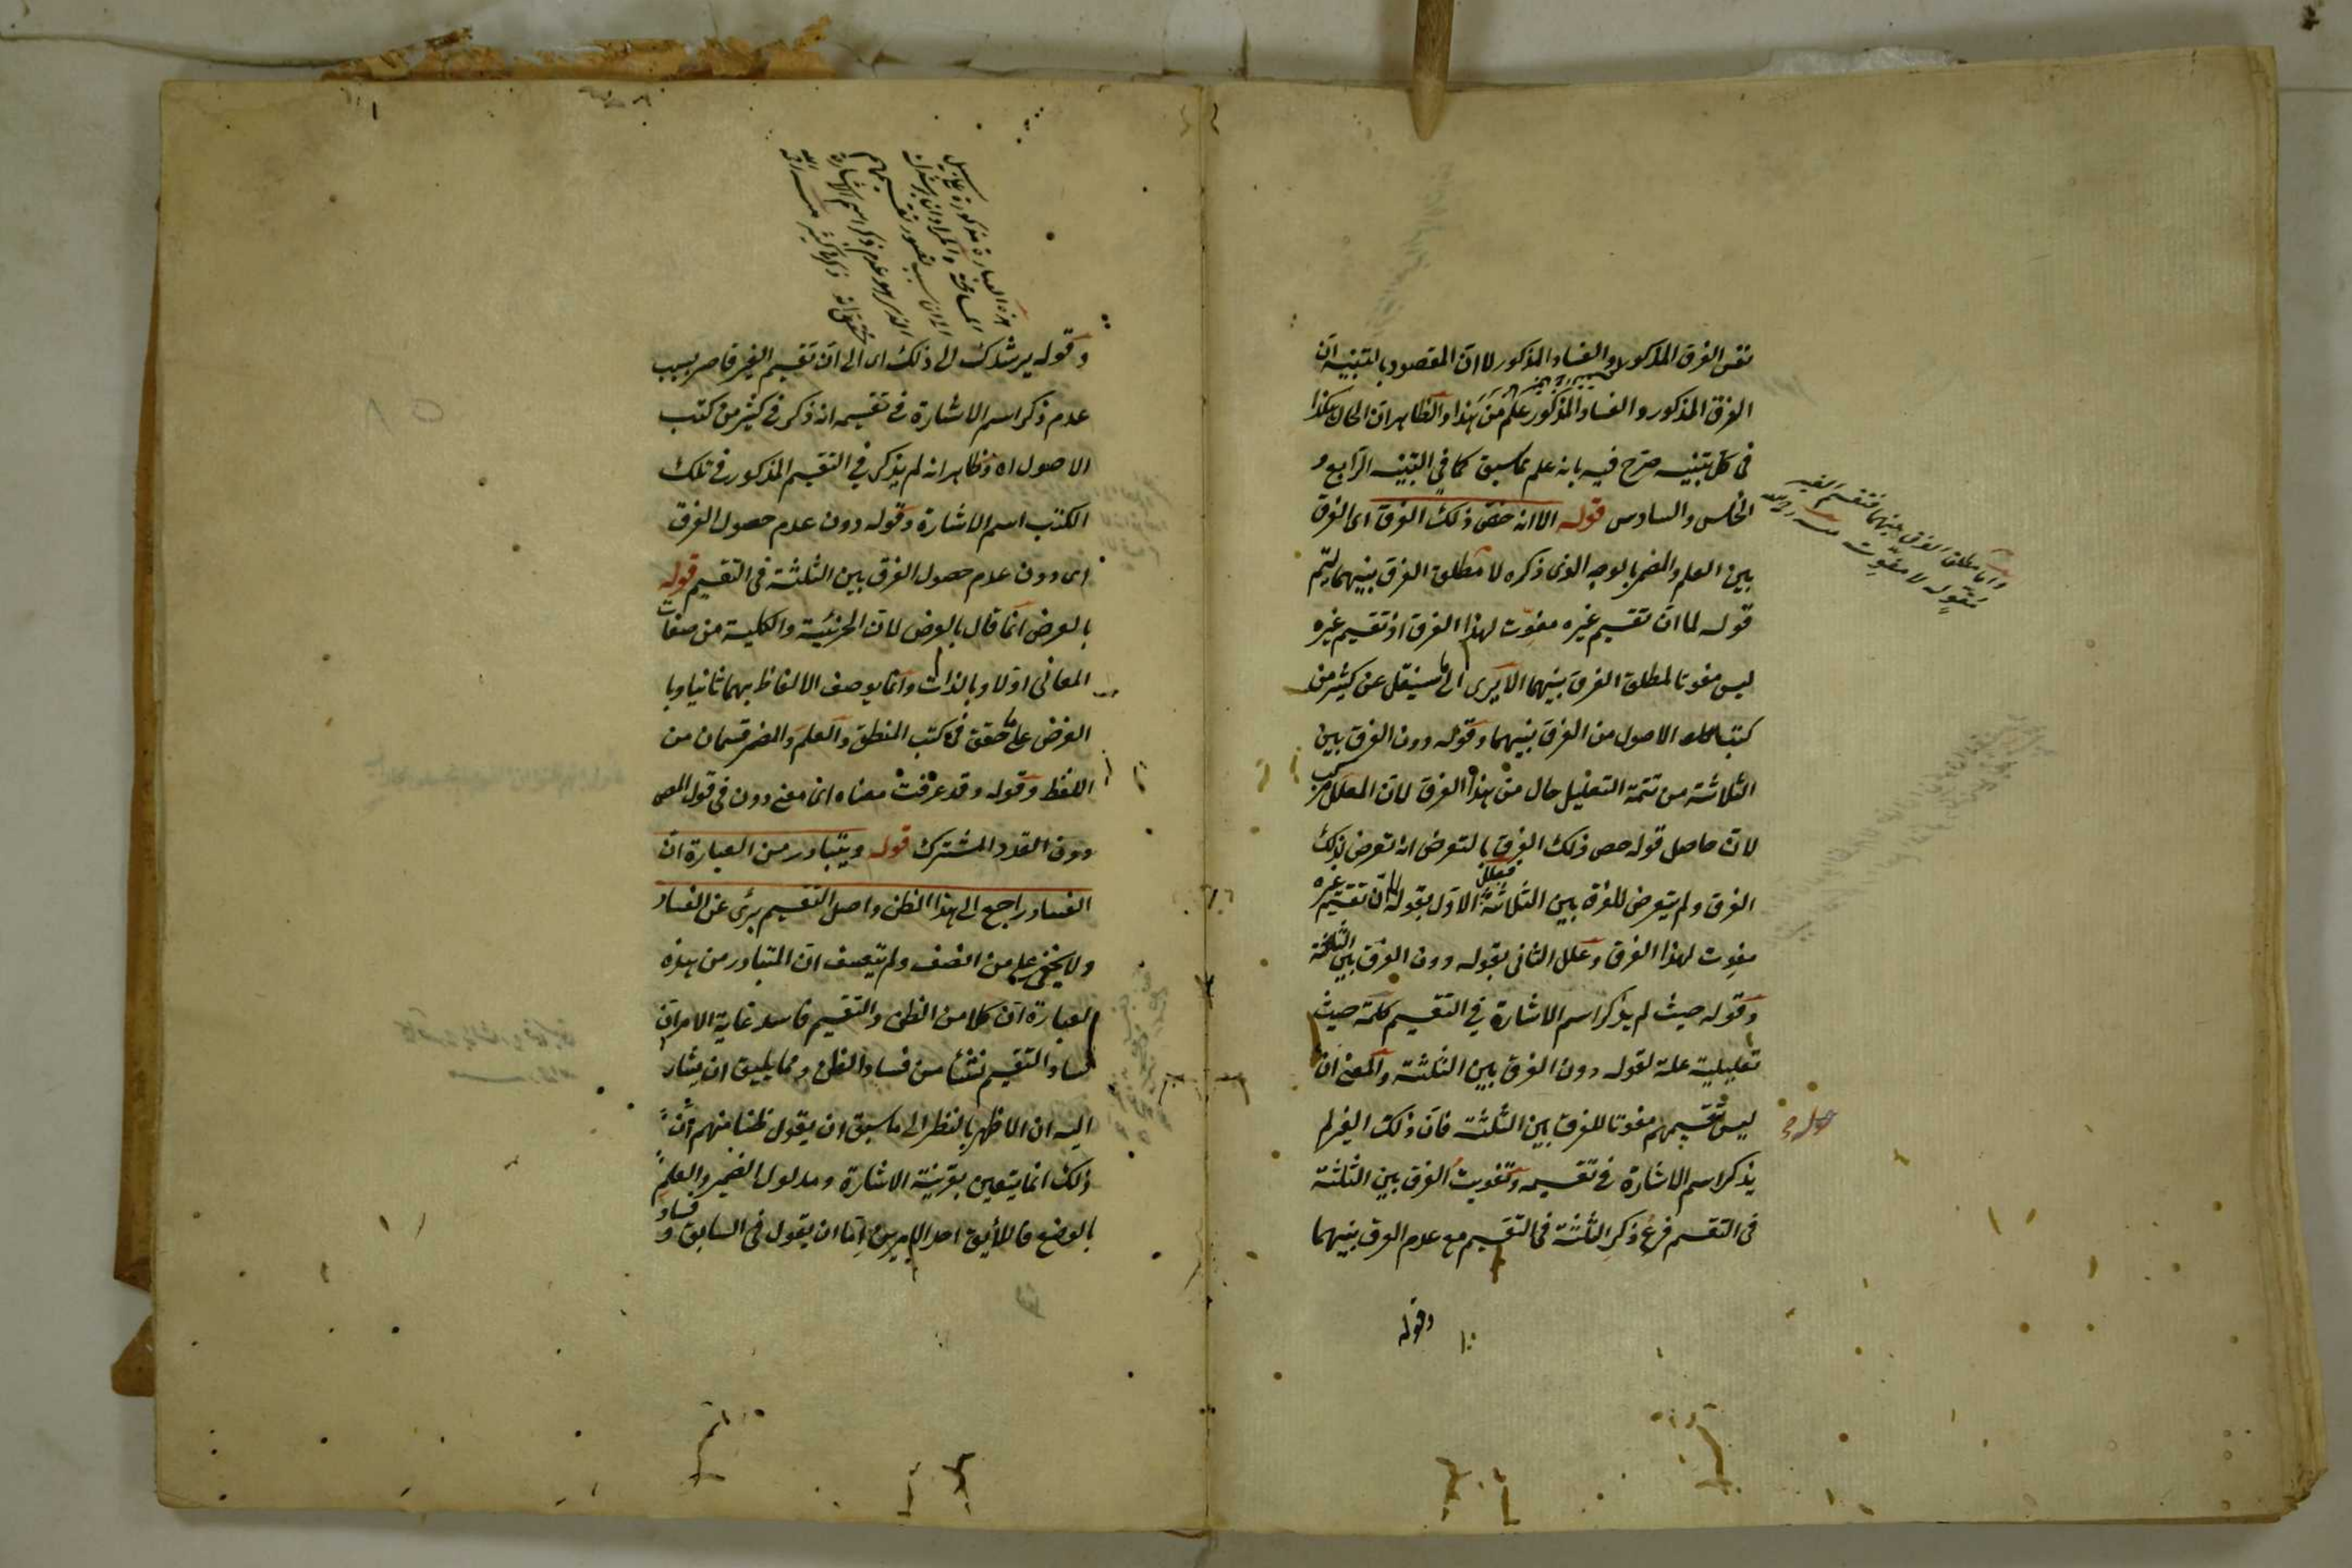 نفس الفرق المذكور والفساد المذكور لا ان المقصود بالتنبيه ان
الفرق المذكور والفساد المذكور علم من هذا والظاهر ان الحال هكذا
فى كل تنبيه صرّح فيه بانه علم مما سبق كما في التنبيه الرابع و
الخامس والسادس قوله الا انه خص ذلك الفرق اى الفرق
بين العلم والمضمر بالوجه الذى ذكره لا مطلق الفرق بينهما ليتم
قوله لما ان تقسيم غيره مفوّت لهذا الفرق اذ تقسيم غيره
ليس مفوتا لمطلق الفرق بينهما الا يرى الى ما سينقل عن كثير من
كتب الاصول من الفرق بينهما وقوله دون الفرق بين
الثلاثة من تتمة التعليل حال من هذا الفرق لان المعلل مركب
لان حاصل قوله خص ذلك الفرق بالتعرض انه تعرض لذلك
الفرق ولم يتعرض للفرق بين الثلاثة فعلل الاول بقوله لما ان تقسيم غيره
مفوت لهذا الفرق وعلل الثانى بقوله دون الفرق بين الثلثة
وقوله حيث لم يذكر اسم الاشارة في التقسيم كلمة حيث
تعليلية علة لقوله دون الفرق بين الثلثة والمعنى ان
ليس تقسيمهم مفوتا للفرق بين الثلثة فان ذلك الغير لم
يذكر اسم الاشارة في تقسيمه وتفويت الفرق بين الثلثة
فى التقسيم فرع ذكر الثلثة فى التقسيم مع عدم الفرق بينهما
وقوله
واما مطلق الفرق بينهما فتقسيم الغير
مقوله لا مفوّت منه رحمه الله
وقوله يرشدك الى ذلك اى الى ان تقسيم الغير قاصر بسبب
عدم ذكر اسم الاشارة في تقسيمه انه ذكر في كثير من كتب
الاصول اه وظاهر انه لم يذكر في التقسيم المذكور في تلك
الكتب اسم الاشارة وقوله دون عدم حصول الفرق
اى دون عدم حصول الفرق بين الثلثة فى التقسيم قوله
بالعرض انما قال بالعرض لان الجزئية والكلية من صفات
المعانى اولا وبالذات وانما يوصف الالفاظ بهما ثانيا وبا
العرض على ما حقق فى كتب المنطق والعلم والمضمر قسمان من
اللفظ وقوله وقد عرفت معناه اى معنى دون فى قول المص
دون القدر المشترك قوله ويتبادر من العبارة ان
الفساد راجع الى هذا الظن واصل التقسيم برئ عن الفساد
ولا يخفى على من انصف ولم يتعسف ان المتبادر من هذه
العبارة ان كلا من الظن والتقسيم فاسد غاية الامر ان
فساد التقسيم نشأ من فساد الظن ومما يليق ان يشار
اليه ان الاظهر بالنظر الى ما سبق ان يقول ظنا منهم ان
ذلك انما يتعين بقرينة الاشارة ومدلول الضمير والعلم
بالوضع فاللايق احد الامرين اما ان يقول فى السابق وفساد
هذه العبارة مذكورة على سبيل
المسامحة والمراد ان يرشدك
الى ان سبب قصور تقسيمهم
انما هو عدم ذكر اسم الاشارة